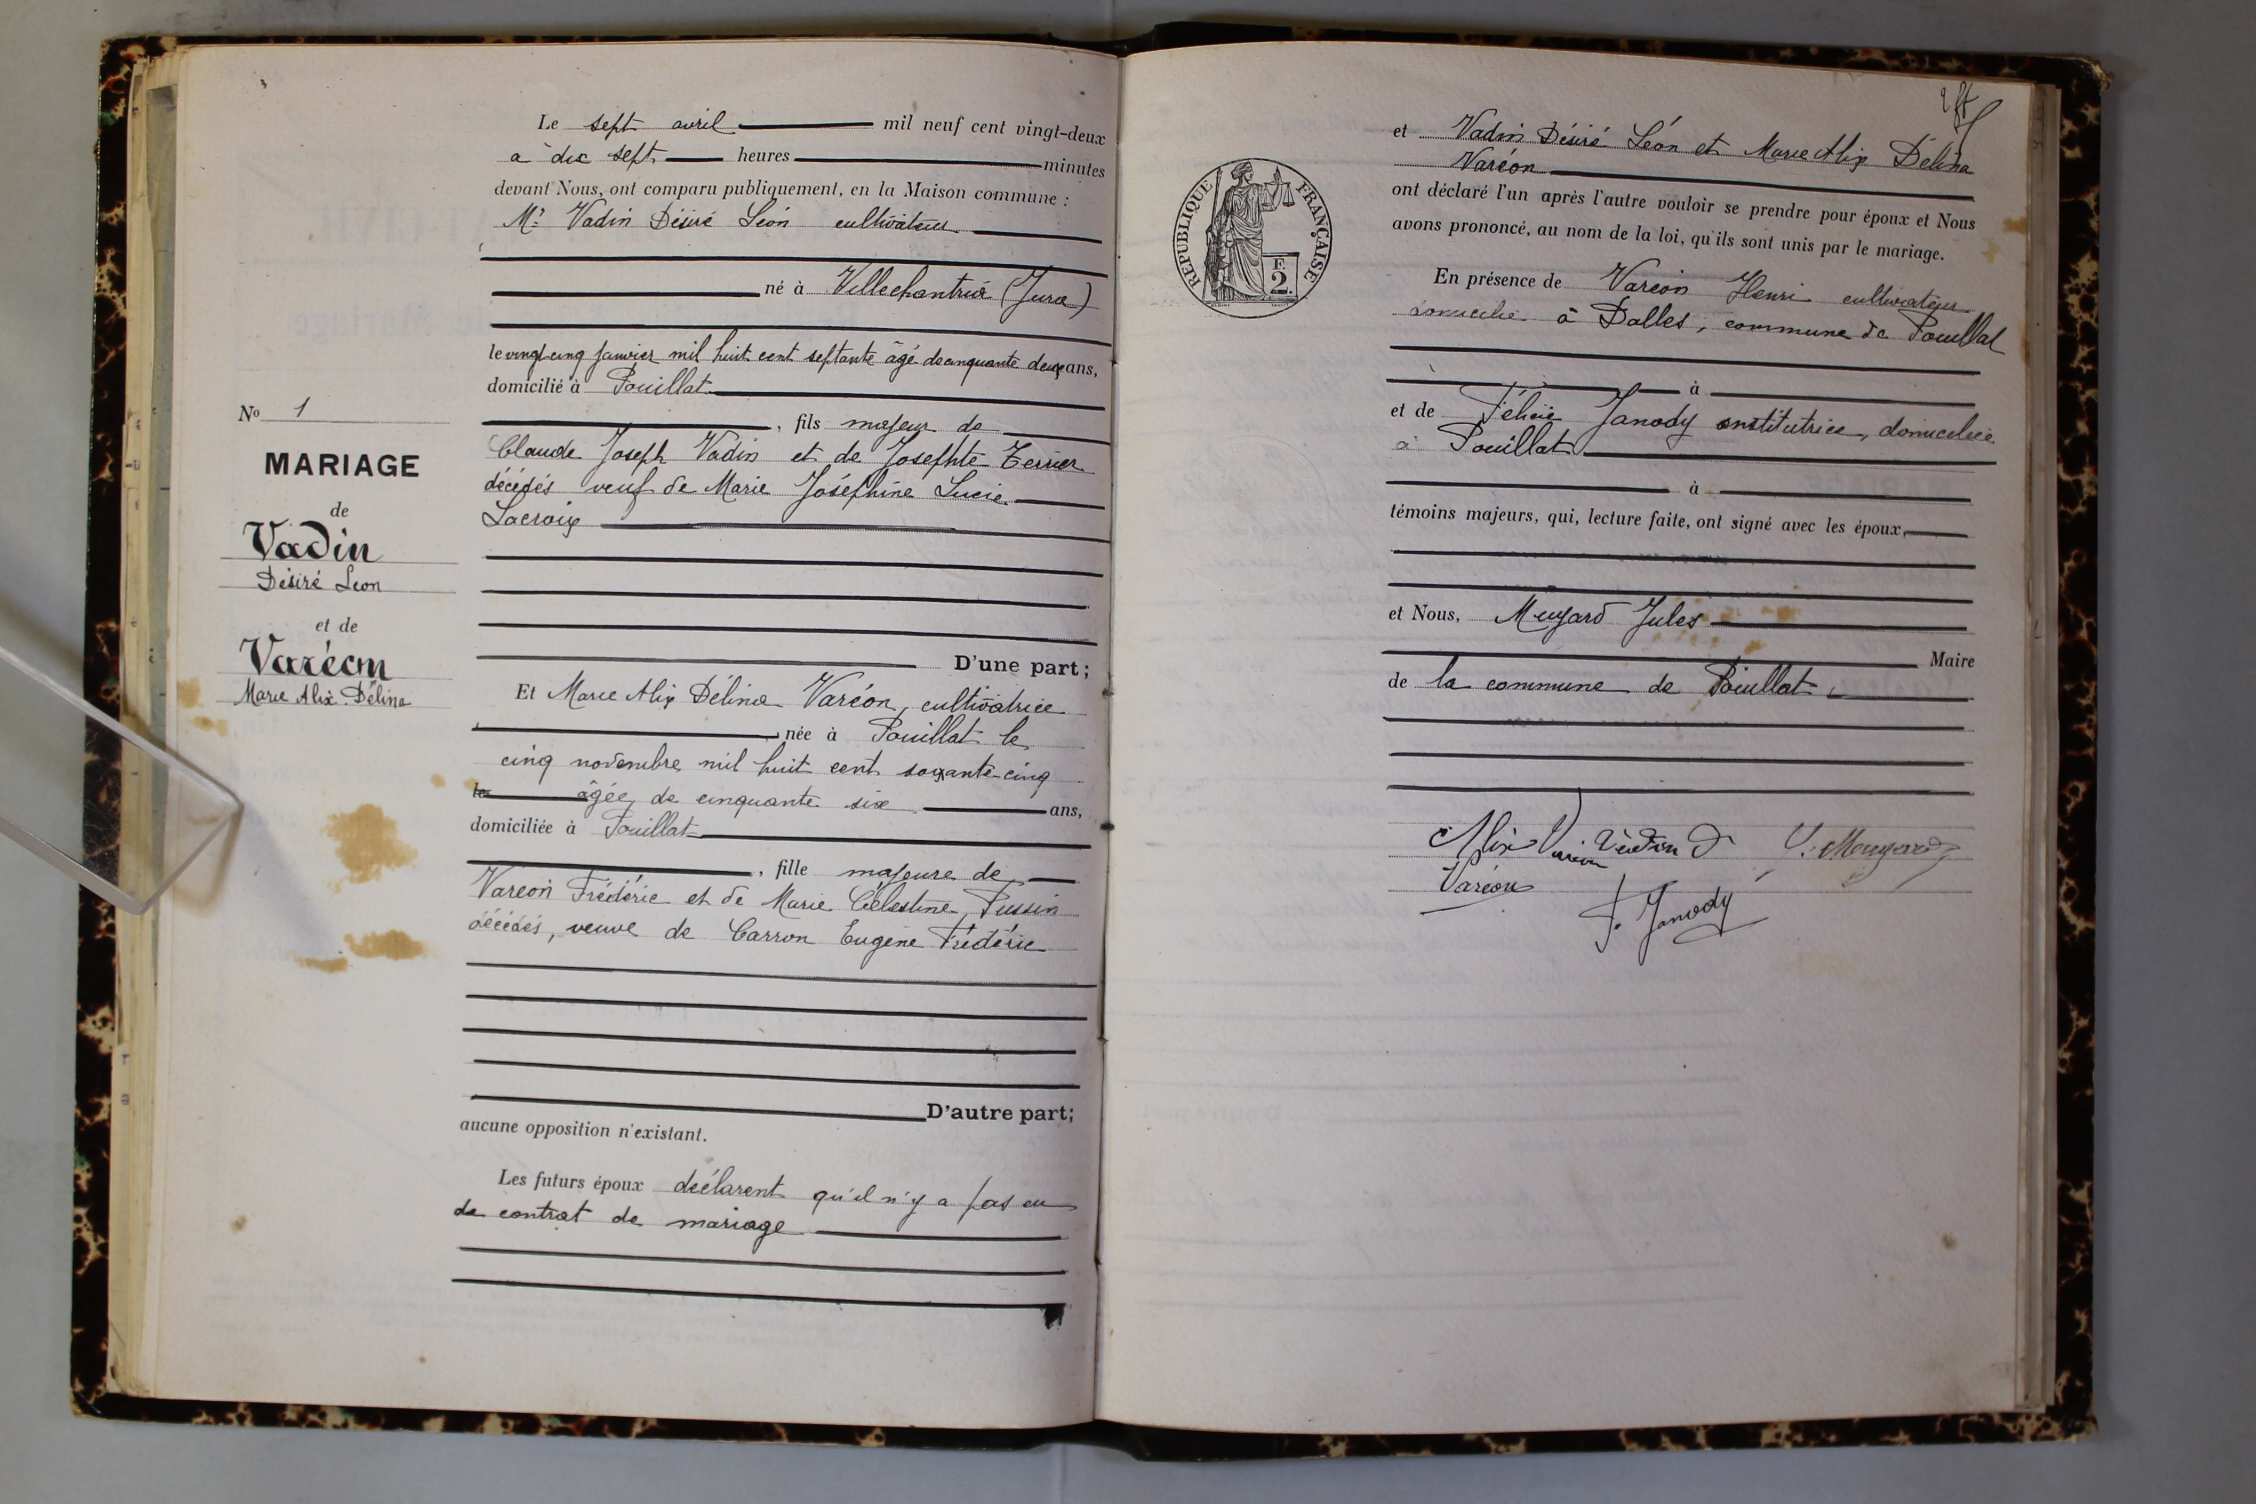 Le sept avril mil neuf cent vingt-deux
à dix sept heures minutes
devant Nous, ont comparu publiquement, en la Maison commune :
Mr Vadin Désiré Léon cultivateur
né à Villechantria (Jura)
le vingt cinq janvier mil huit cent septante âgé de cinquante deux ans,
domicilié à Pouillat
, fils majeur de
Claude Joseph Vadin et de Josephte Terrier
décédés veuf de Marie Joséphine Lucie
Lacroix
D'une part ;
Et Marie Alix Délina Varéon, cultivatrice
née à Pouillat le
cinq novembre mil huit cent soixante-cinq
le âgée de cinquante six ans,
domiciliée à Pouillat
, fille majeure de
Varéon Frédéric et de Marie Célestine Pussin
décédés, veuve de Carron Eugène Frédéric
D'autre part ;
aucune opposition n'existant.
Les futurs époux déclarent qu'il n'y a pas eu
de contrat de mariage
No 1
MARIAGE
de
Vadin
Désiré Léon
et de
Varéon
Marie Alix Délina
RÉPUBLIQUE FRANÇAISE
F.
2.
et Vadin Désiré Léon et Marie Alix Délina
Varéon
ont déclaré l'un après l'autre vouloir se prendre pour époux et Nous
avons prononcé, au nom de la loi, qu'ils sont unis par le mariage.
En présence de Varéon Henri cultivateur
domicilié à Dalles, commune de Pouillat
à
et de Félicie Janody institutrice, domiciliée
à Pouillat
à
témoins majeurs, qui, lecture faite, ont signé avec les époux,
et Nous, Mugard Jules
Maire
de la commune de Pouillat
Alix Varéon Vadin D J. Mougard
Varéon
F. Janody